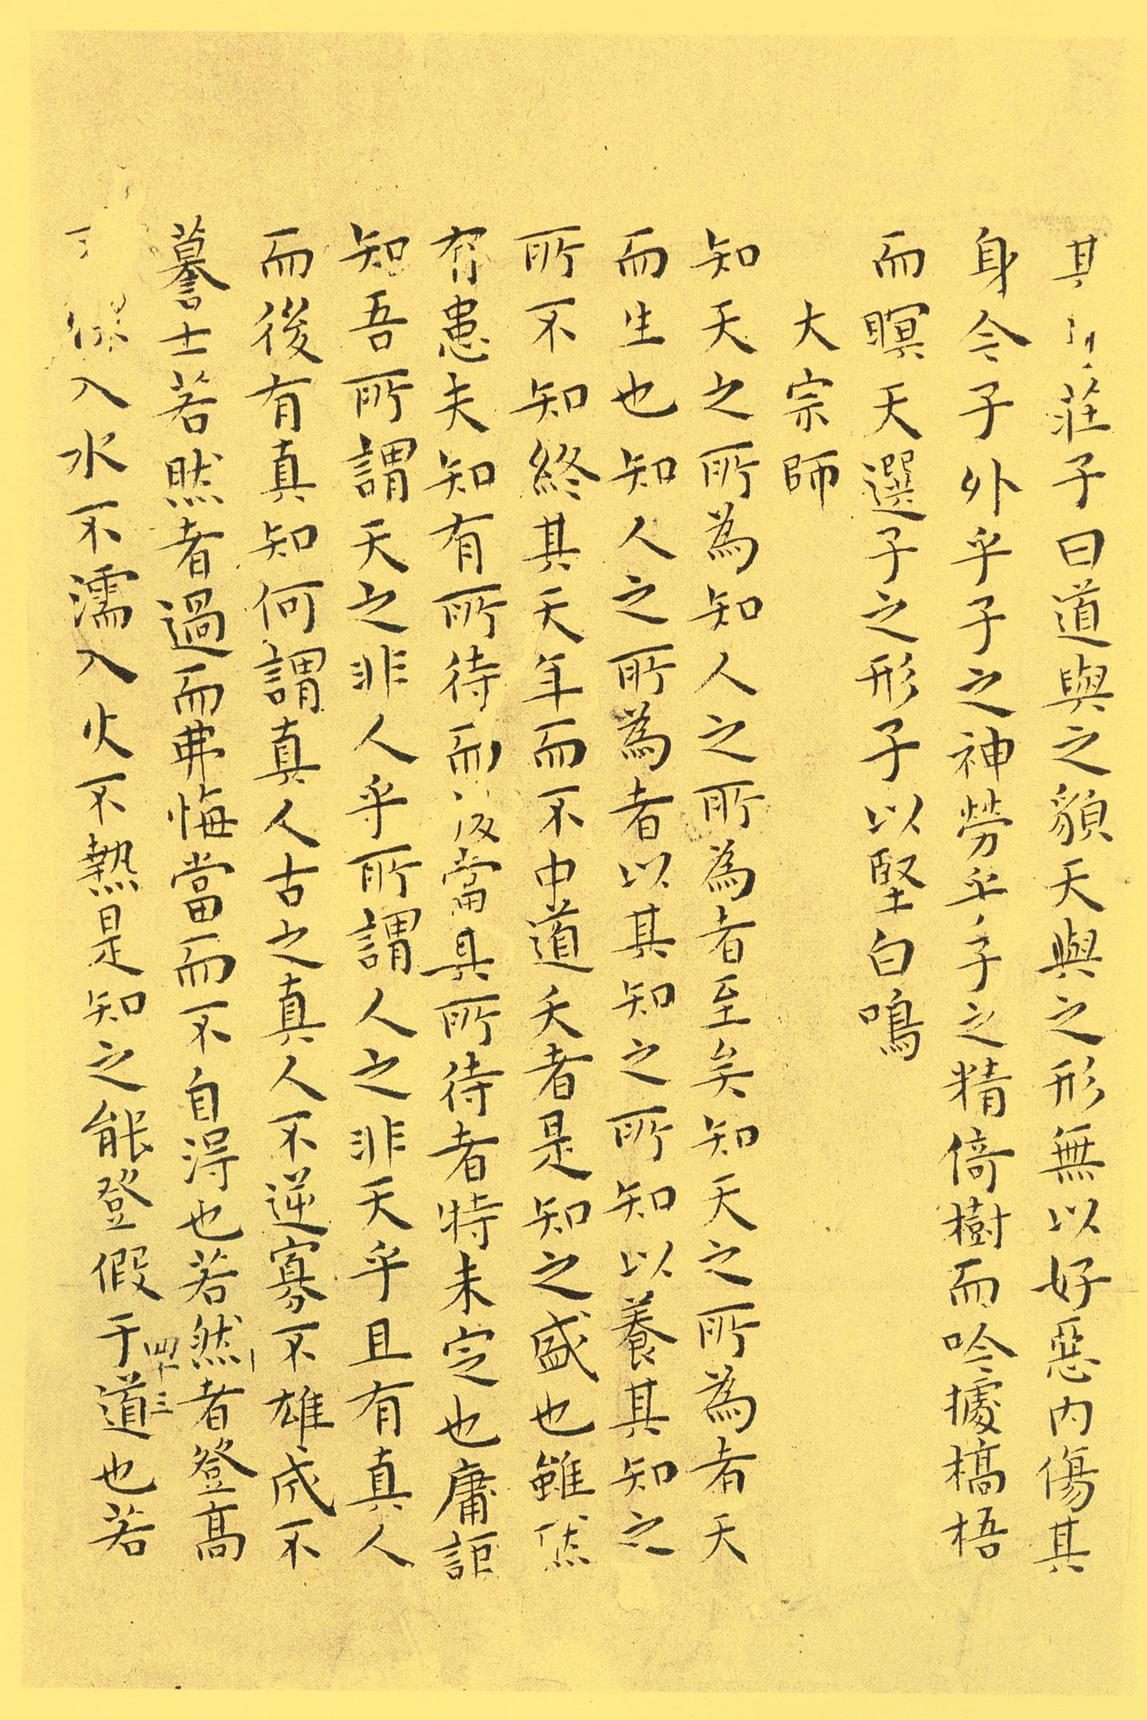 其身莊子曰道與之貌天與之形無以好惡內傷其
身今子外乎子之神勞乎子之精倚樹而吟據槁梧
而瞑天選子之形子以堅白鳴
大宗師
知天之所為知人之所為者至矣知天之所為者天
而生也知人之所為者以其知之所知以養其知之
所不知終其天年而不中道夭者是知之盛也雖然
有患夫知有所待而後當其所待者特未定也庸詎
知吾所謂天之非人乎所謂人之非天乎且有真人
而後有真知何謂真人古之真人不逆寡不雄成不
謩士若然者過而弗悔當而不自得也若然者登高
不慄入水不濡入火不熱是知之能登假于道也若
四十三